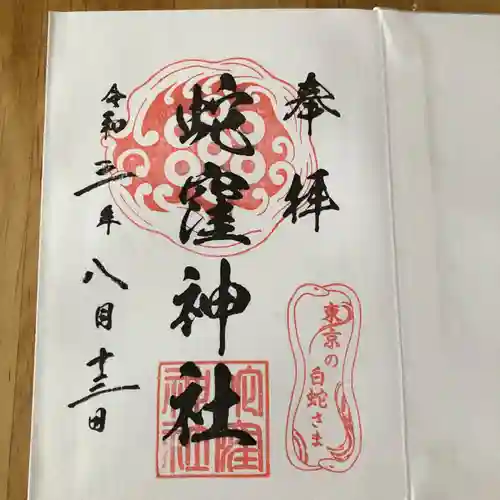 奉拝
東京の白蛇さま
蛇窪神社
蛇窪神社
令和三年八月十三日